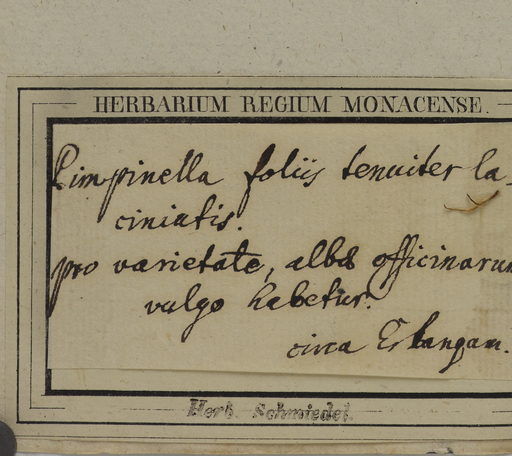 HERBARIUM REGIUM MONACENSE.
Pimpinella foliis tenuiter la-
ciniatis.
pro varietate, albæ officinarum
vulgo habetur.
circa Erlangam.
Herb. Schmiedel.